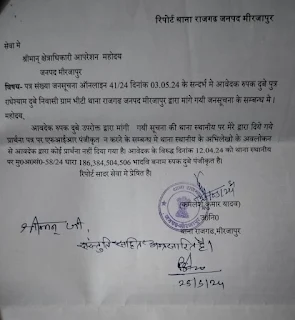 रिपोर्ट थाना राजगढ़ जनपद मीरजापुर
सेवा मे
श्रीमान् क्षेत्राधिकारी आपरेशन महोदय
जनपद मीरजापुर
विषय- पत्र संख्या जनसूचना ऑनलाइन 41/24 दिनांक 03.05.24 के सन्दर्भ में आवेदक रुपक दुबे पुत्र
राधेश्याम दुबे निवासी ग्राम भीटी थाना राजगढ़ जनपद मीरजापुर द्वारा मांग गयी जनसूचना के सम्बन्ध मे।
महोदय,
आवेदक रुपक दुबे उपरोक्त द्वारा मांगी गयी सूचना की थाना स्थानीय पर मेरे द्वारा दिये गये
प्रार्थना पत्र पर एफआईआर पंजीकृत न करने के सम्बन्ध मे थाना स्थानीय के अभिलेखो के अवलोकन
से आवेदक द्वारा कोई प्रार्थना नहीं दिया गया है। आवेदक के विरुद्ध दिनांक 12.04.24 को थाना स्थानीय
पर मु0अ0सं0-58/24 धारा 186,384,504,506 भादवि बनाम रुपक दुबे पंजीकृत है।
रिपोर्ट सादर सेवा मे प्रेषित है।
कुमार यादव)
थाना राजगढ़, मीरजापुर
श्रीमान् जी,
है।
25/5/24